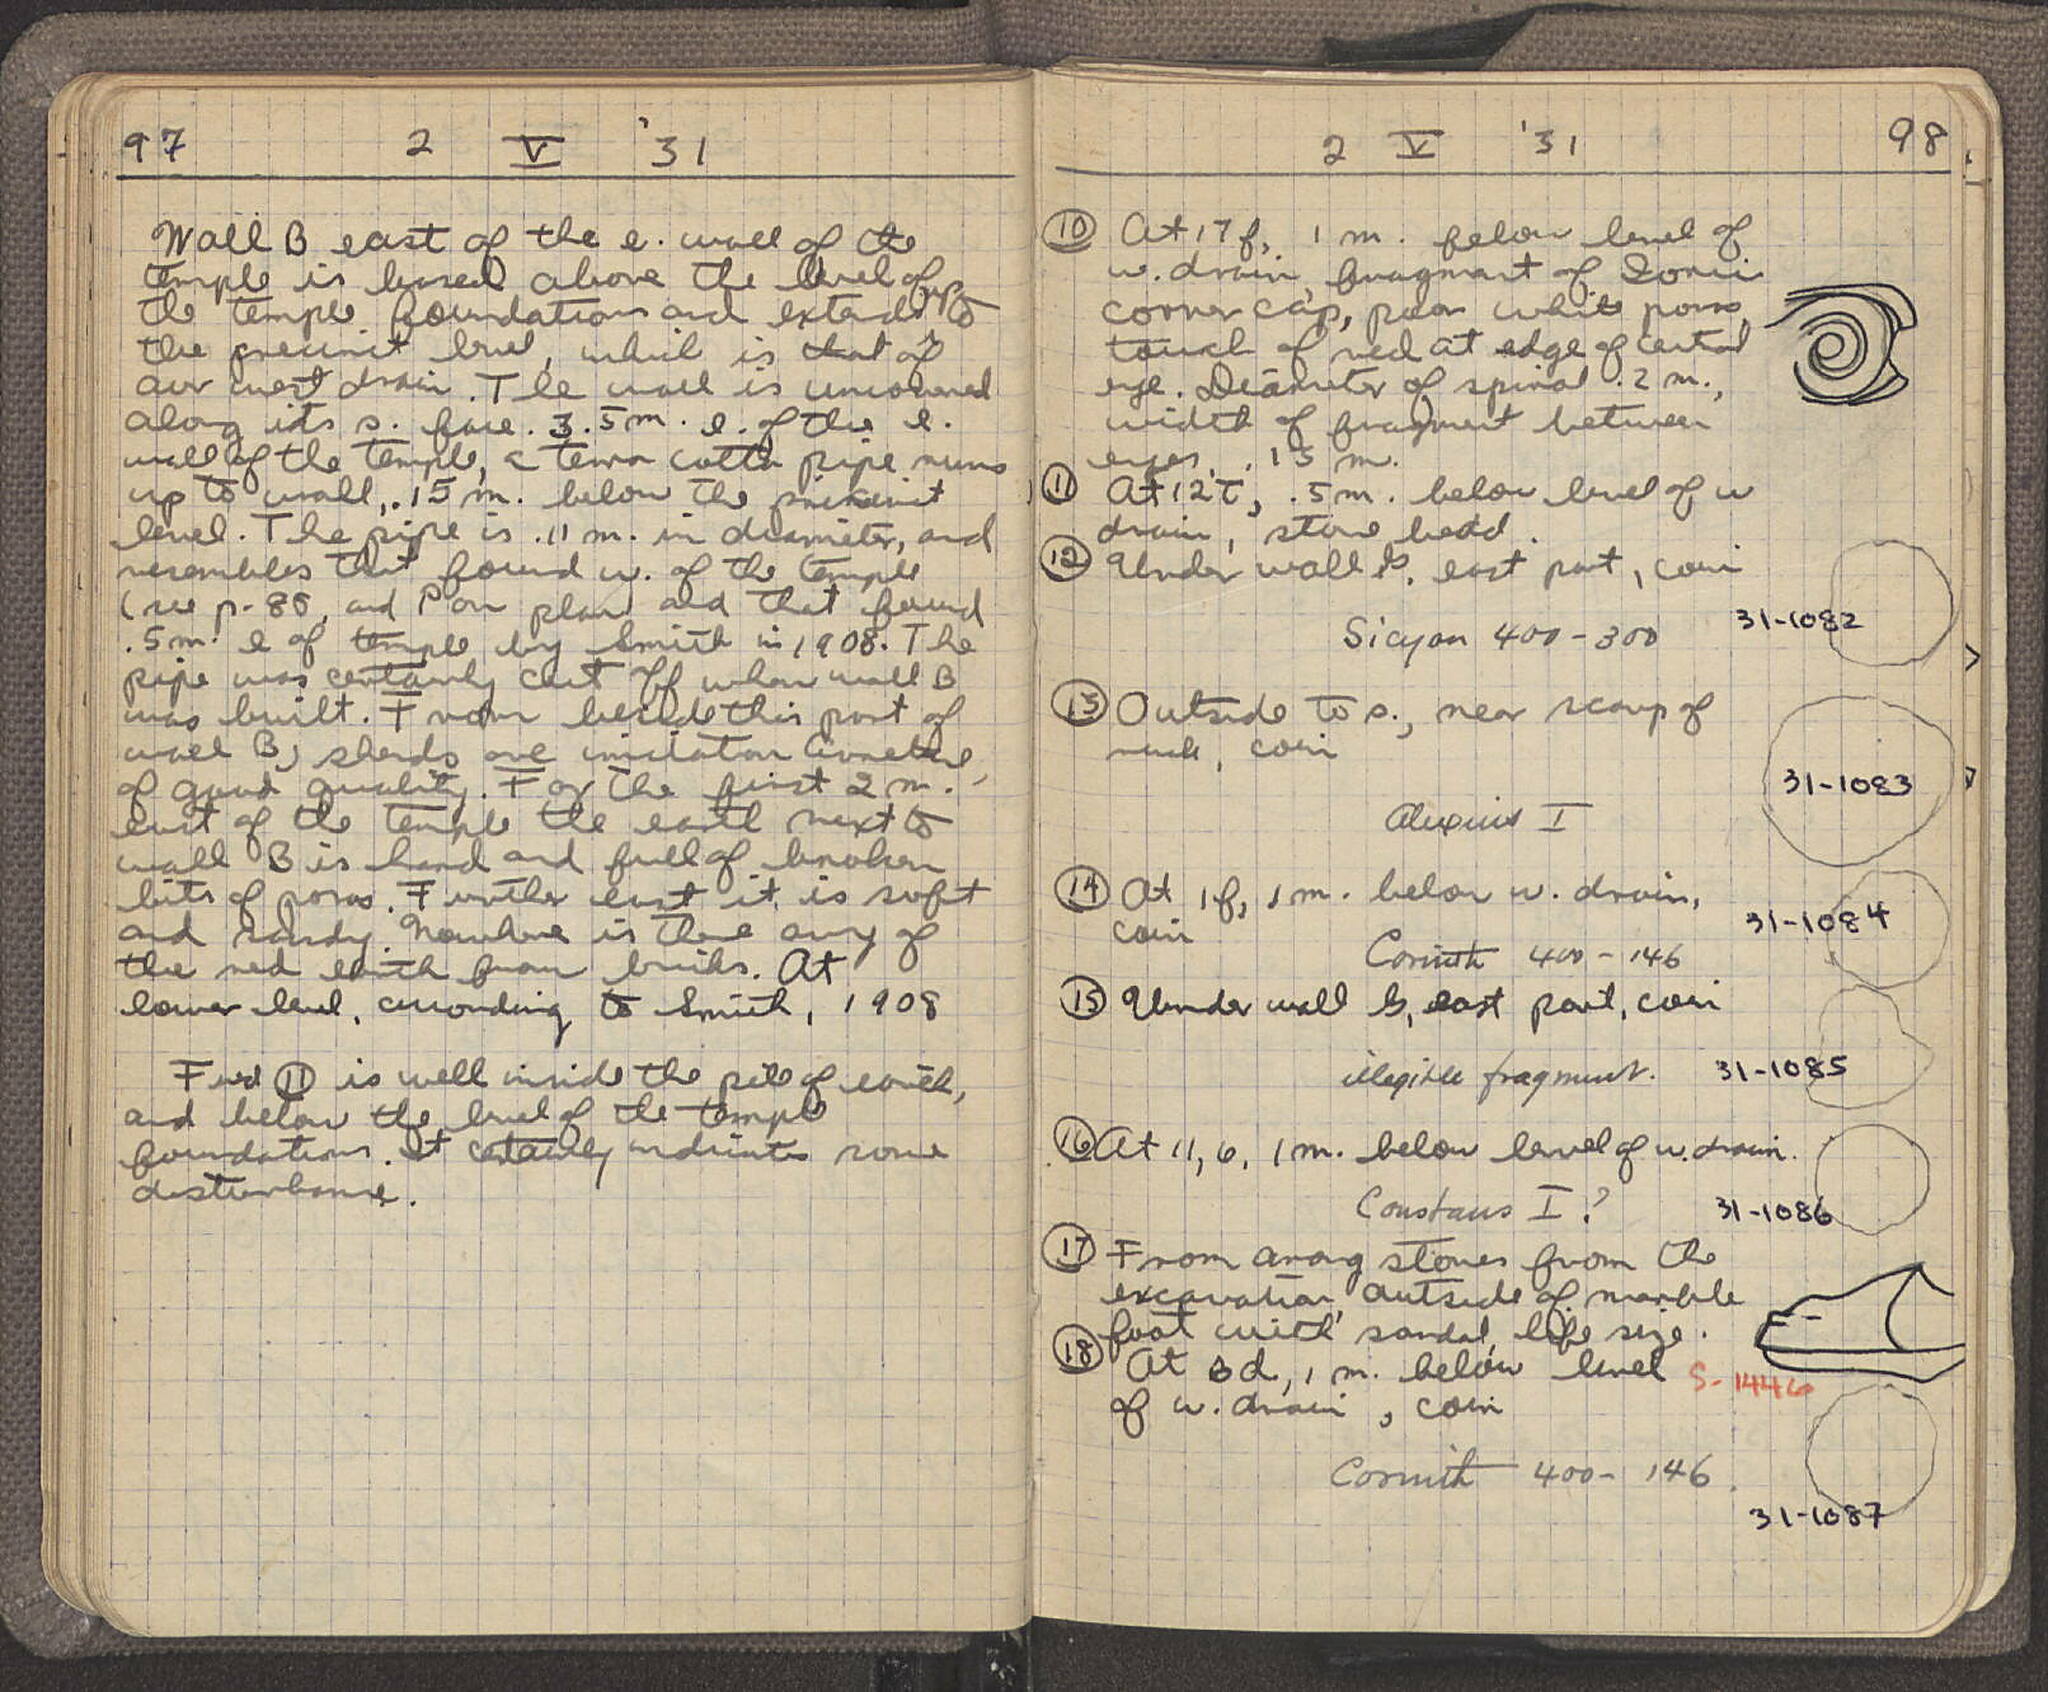 97 2 V '31
Wall B east of the e. wall of the
temple is based above the level of
the temple foundations and extends up to
the precinct level, which is that of
our west drain. The wall is uncovered
along its s. face. 3.5 m. e. of the e.
wall of the temple, a terra cotta pipe runs
up to wall, .15 m. below the precinct
level. The pipe is .11 m. in diameter, and
resembles that found w. of the temple
(see p. 88, and P on plan and that found
.5 m. e of temple by Smith in 1908. The
pipe was certainly cut off when wall B
was built. From beside this part of
wall B, sherds are imitation Arretine,
of good quality. For the first 2 m.
east of the temple the earth next to
wall B is hard and full of broken
bits of poros. Further east it is soft
and sandy. Nowhere is there any of
the red earth from bricks. At
lower level, according to Smith, 1908
Find 11 is well inside the pile of earth,
and below the level of the temple
foundations. It certainly indicates some
disturbance.
2 V '31 98
10 At 17 f, 1 m. below level of
w. drain, fragment of Ionic
corner cap, poor white poros,
touch of red at edge of central
eye. Diameter of spiral .2 m.,
width of fragment between
eyes, .15 m.
11 At 12 t, .5 m. below level of w
drain, stone bead.
12 Under wall B, east part, coin
Sicyon 400-300 31-1082
13 Outside to s., near scarp of
rock, coin
31-1083
Alexius I
14 At 1f, 1 m. below w. drain,
coin 31-1084
Corinth 400-146
15 Under wall B, east part, coin
illegible fragment. 31-1085
16 At 11, 6, 1 m. below level of w. drain.
Constans I? 31-1086
17 From among stones from the
excavation, outside of marble
foot with sandal, life size.
18 At 3d, 1 m. below level S-1446
of w. drain, coin
Corinth 400-146
31-1087